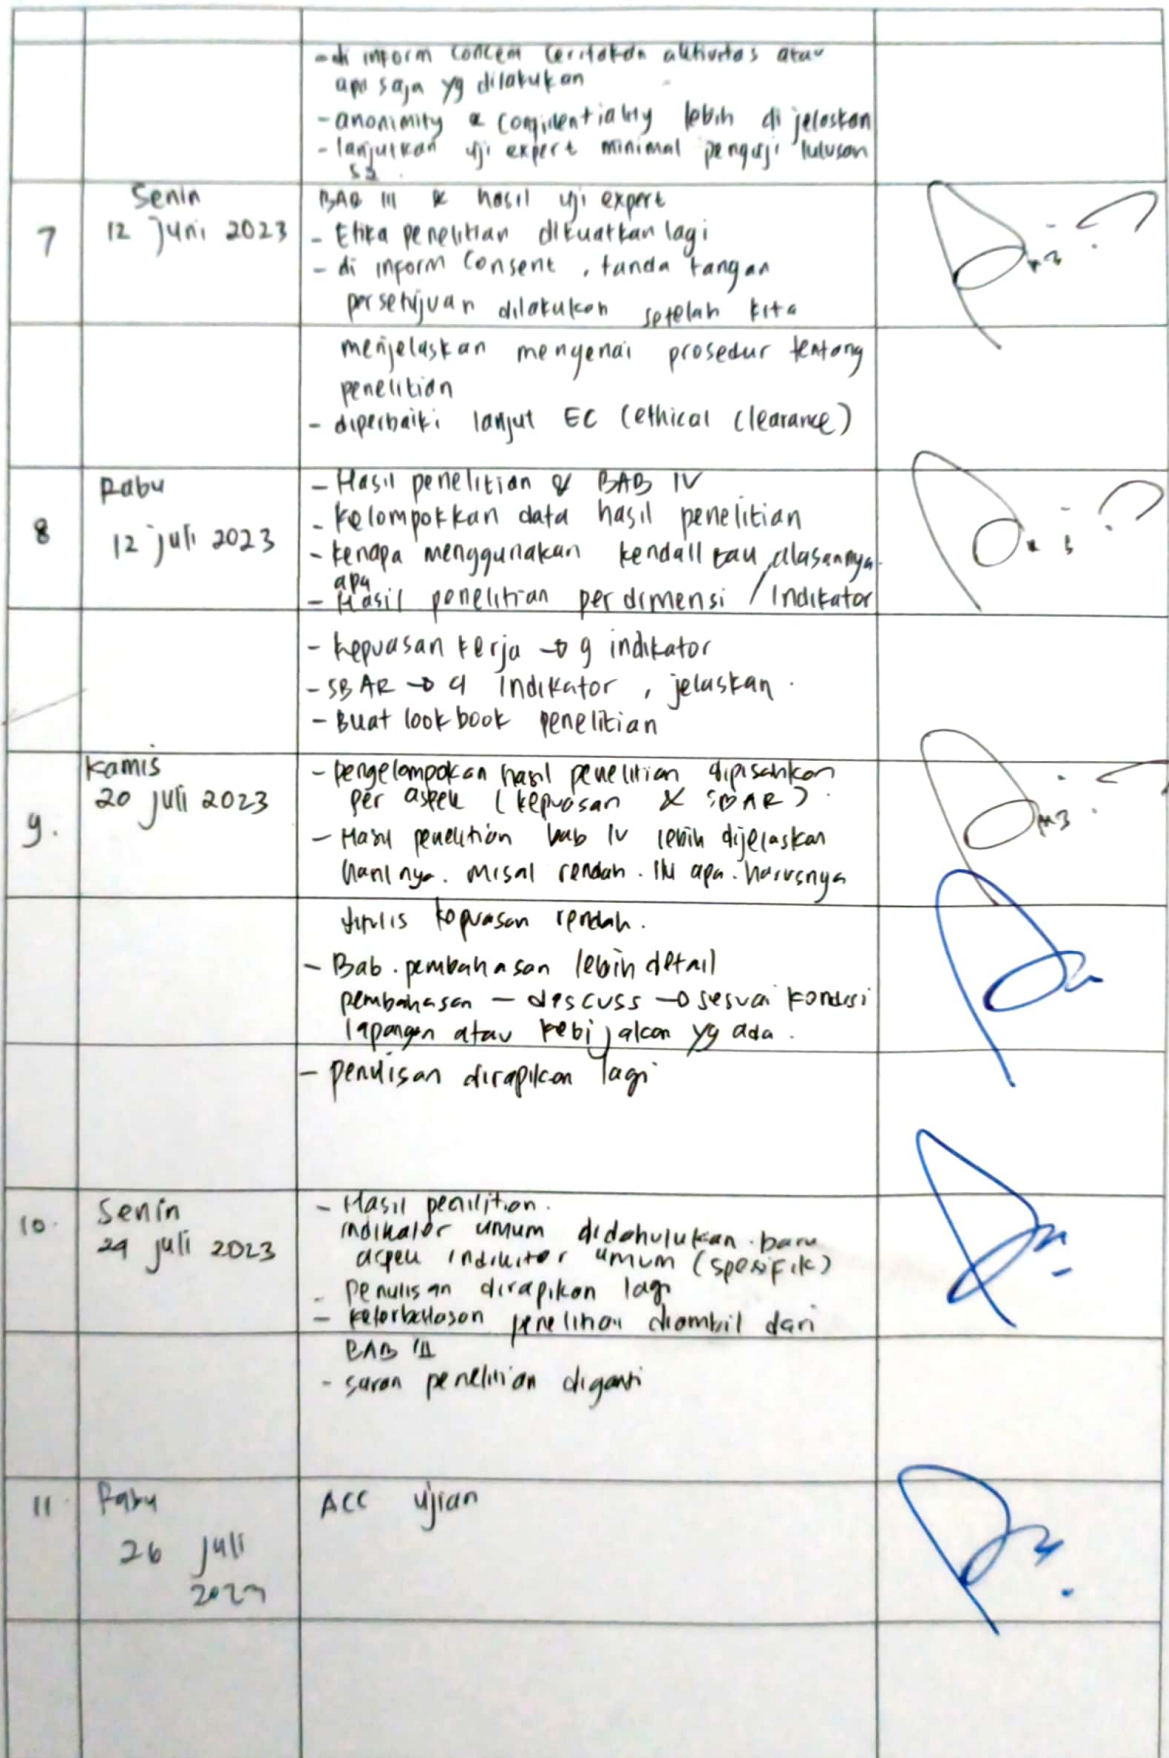 - di inform concern ceritakan aktivitas atau
apa saja yg dilakukan
- anonimity & confidentiality lebih di jelaskan
- lanjutkan uji expert minimal penguji lulusan
S2.
7
Senin
12 Juni 2023
BAB III & hasil uji expert
- Etika penelitian dikuatkan lagi
- di inform Consent, tanda tangan
persetujuan dilakukan setelah kita
menjelaskan mengenai prosedur tentang
penelitian
- diperbaiki lanjut EC (ethical clearance)
8
Rabu
12 juli 2023
- Hasil penelitian & BAB IV
- Kelompokkan data hasil penelitian
- kenapa menggunakan kendall tau, alasannya
apa
- Hasil penelitian perdimensi / Indikator
- kepuasan kerja → 9 indikator
- SBAR → 4 Indikator, jelaskan.
- Buat lookbook penelitian
9.
Kamis
20 juli 2023
- pengelompokan hasil penelitian dipisahkan
per aspek (kepuasan & SBAR).
- Hasil penelitian bab IV lebih dijelaskan
hasilnya. Misal rendah. Itu apa. harusnya
ditulis kepuasan rendah.
- Bab. pembahasan lebih detail
pembahasan - discuss → sesuai kondisi
lapangan atau kebijakan yg ada.
- penulisan dirapikan lagi
10.
Senin
24 juli 2023
- Hasil penilitian.
indikator umum didahulukan. baru
aspek indikator umum (spesifik)
- penulisan dirapikan lagi
- keterbatasan penelitian diambil dari
BAB III
- saran penelitian diganti
11.
Rabu
26 juli
2023
ACC ujian